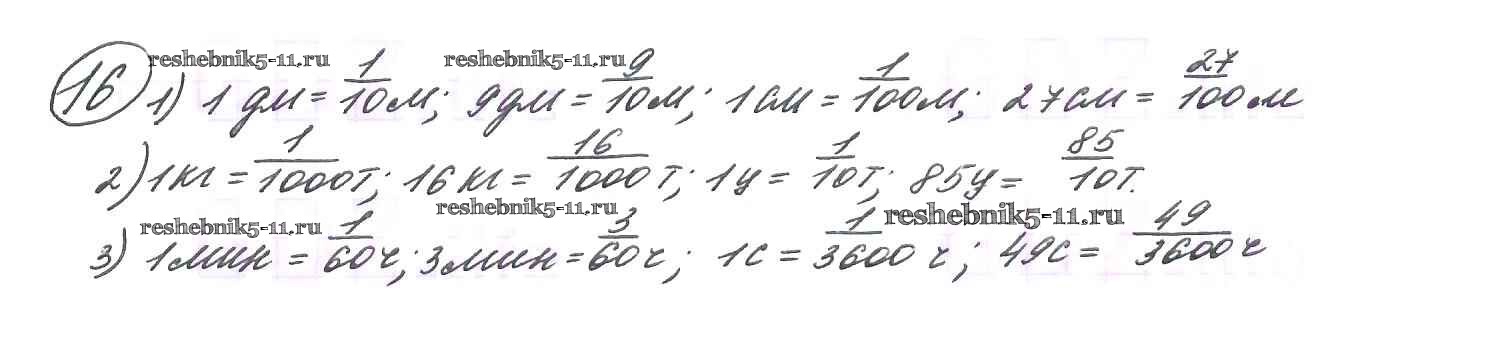 reshebnik5-11.ru reshebnik5-11.ru
16 1) 1 дм = 1/10 м; 9 дм = 9/10 м; 1 см = 1/100 м; 27 см = 27/100 м
2) 1 кг = 1/1000 т; 16 кг = 16/1000 т; 1 ц = 1/10 т; 85 ц = 85/10 т.
reshebnik5-11.ru reshebnik5-11.ru reshebnik5-11.ru
3) 1 мин = 1/60 ч; 3 мин = 3/60 ч; 1 с = 1/3600 ч; 49 с = 49/3600 ч